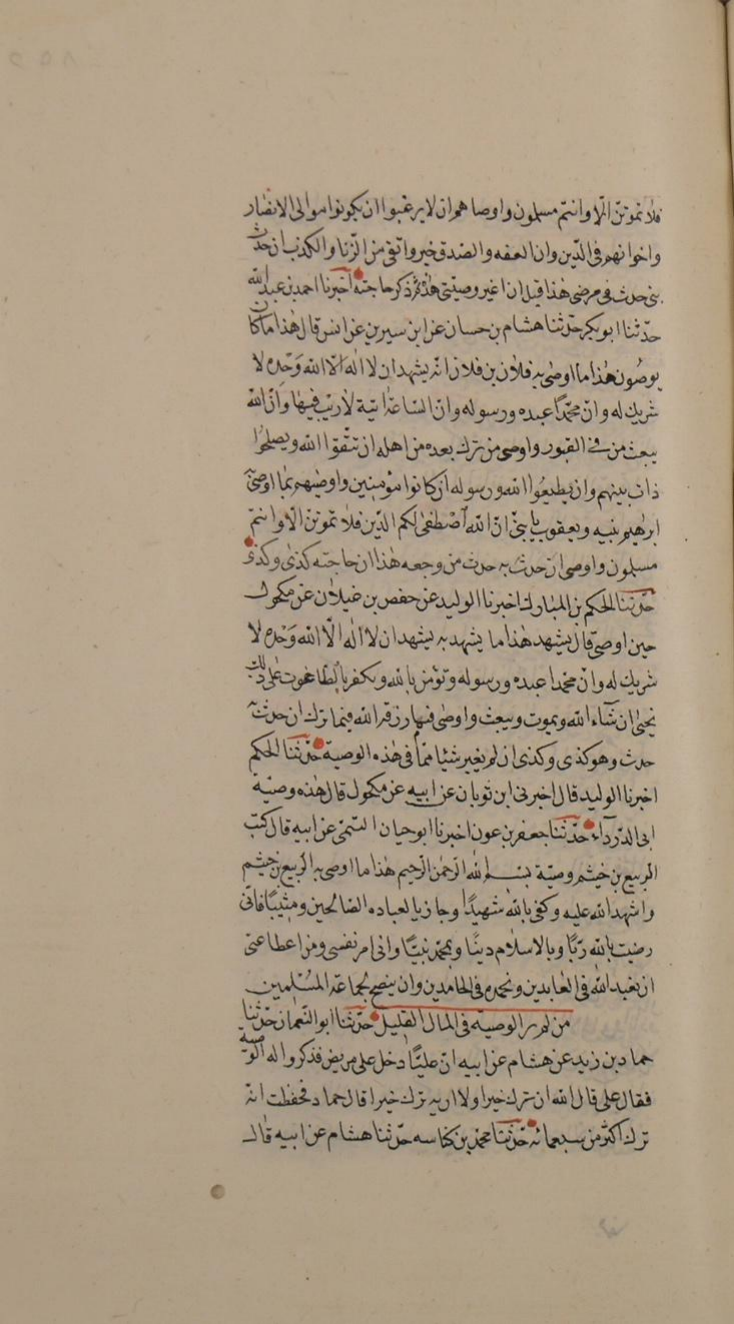 فلا تموتن الا وانتم مسلمون واوصاهم ان لا يرغبوا ان يكونوا موالى الانصار
واخوانهم فى الدين وان العفه والصدق خير واتقى من الزنا والكذب ان حدث
بى حدث فى مرضى هذا قبل ان اغير وصيتى هذه ثم ذكر حاجته اخبرنا احمد بن عبد الله
حدثنا ابو بكر حدثنا هشام بن حسان عن ابن سيرين عن انس قال هذا ما كانوا
يوصون هذا ما اوصى به فلان بن فلان انه يشهد ان لا اله الا الله وحده لا
شريك له وان محمدا عبده ورسوله وان الساعة اتية لا ريب فيها وان الله
يبعث من فى القبور واوصى من ترك بعده من اهله ان تتقوا الله ويصلحوا
ذات بينهم وان يطيعوا الله ورسوله ان كانوا مؤمنين واوصيهم بما اوصى
ابرهيم بنيه ويعقوب يا بنى ان الله اصطفى لكم الدين فلا تموتن الا وانتم
مسلمون واوصى ان حدث به حدث من وجعه هذا ان حاجته كذى وكذى
حدثنا الحكم بن المبارك اخبرنا الوليد عن حفص بن غيلان عن مكحول
حين اوصى قال يشهد هذا ما يشهد به يشهد ان لا اله الا الله وحده لا
شريك له وان محمدا عبده ورسوله وتؤمن بالله ويكفر بالطاغوت على ذلك
يحيى ان شاء الله ويموت ويبعث واوصى فيما رزقه الله فيما ترك ان حدث به
حدث وهو كذى وكذى ان لم يغير شيئا مما فى هذه الوصية حدثنا الحكم
اخبرنا الوليد قال اخبرنى ابن ثوبان عن ابيه عن مكحول قال هذه وصية
ابى الدرداء حدثنا جعفر بن عون اخبرنا ابو حيان التيمى عن ابيه قال كتب
الربيع بن خيثم وصية بسم الله الرحمن الرحيم هذا ما اوصى به الربيع بن خيثم
واشهد الله عليه وكفى بالله شهيدا وجازيا لعباده الصالحين ومثيبا فانى
رضيت بالله ربا وبالاسلام دينا وبمحمد نبيا وانى امر نفسى ومن اطاعنى
ان نعبد الله فى العابدين ونحمده فى الحامدين وان ينصح لجماعة المسلمين
من لم ير الوصية فى المال القليل حدثنا ابو النعمان حدثنا
حماد بن زيد عن هشام عن ابيه ان عليا دخل على مريض فذكروا له الوصية
فقال على قال الله ان ترك خيرا ولا اريه ترك خيرا قال حماد فحفظت انه
ترك اكثر من سبعمائه حدثنا محمد بن كناسه حدثنا هشام عن ابيه قال